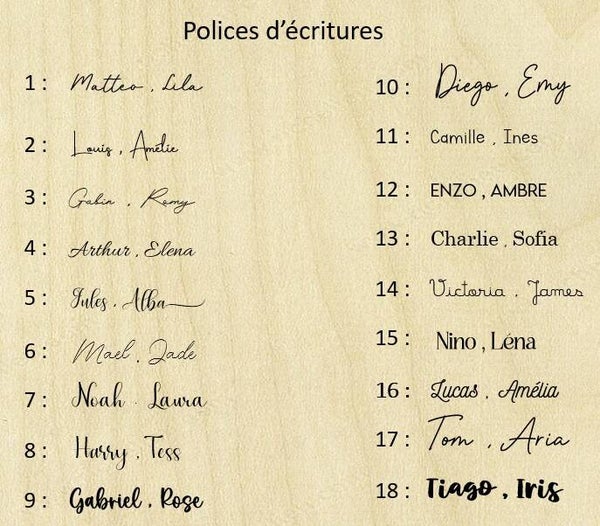 Polices d'écritures
1 : Matteo , Lila
2 : Louis , Amélie
3 : Gabin , Romy
4 : Arthur , Elena
5 : Jules , Alba
6 : Mael , Jade
7 : Noah . Laura
8 : Harry , Tess
9 : Gabriel , Rose
10 : Diego , Emy
11 : Camille , Ines
12 : ENZO , AMBRE
13 : Charlie , Sofia
14 : Victoria , James
15 : Nino , Léna
16 : Lucas , Amélia
17 : Tom , Aria
18 : Tiago , Iris